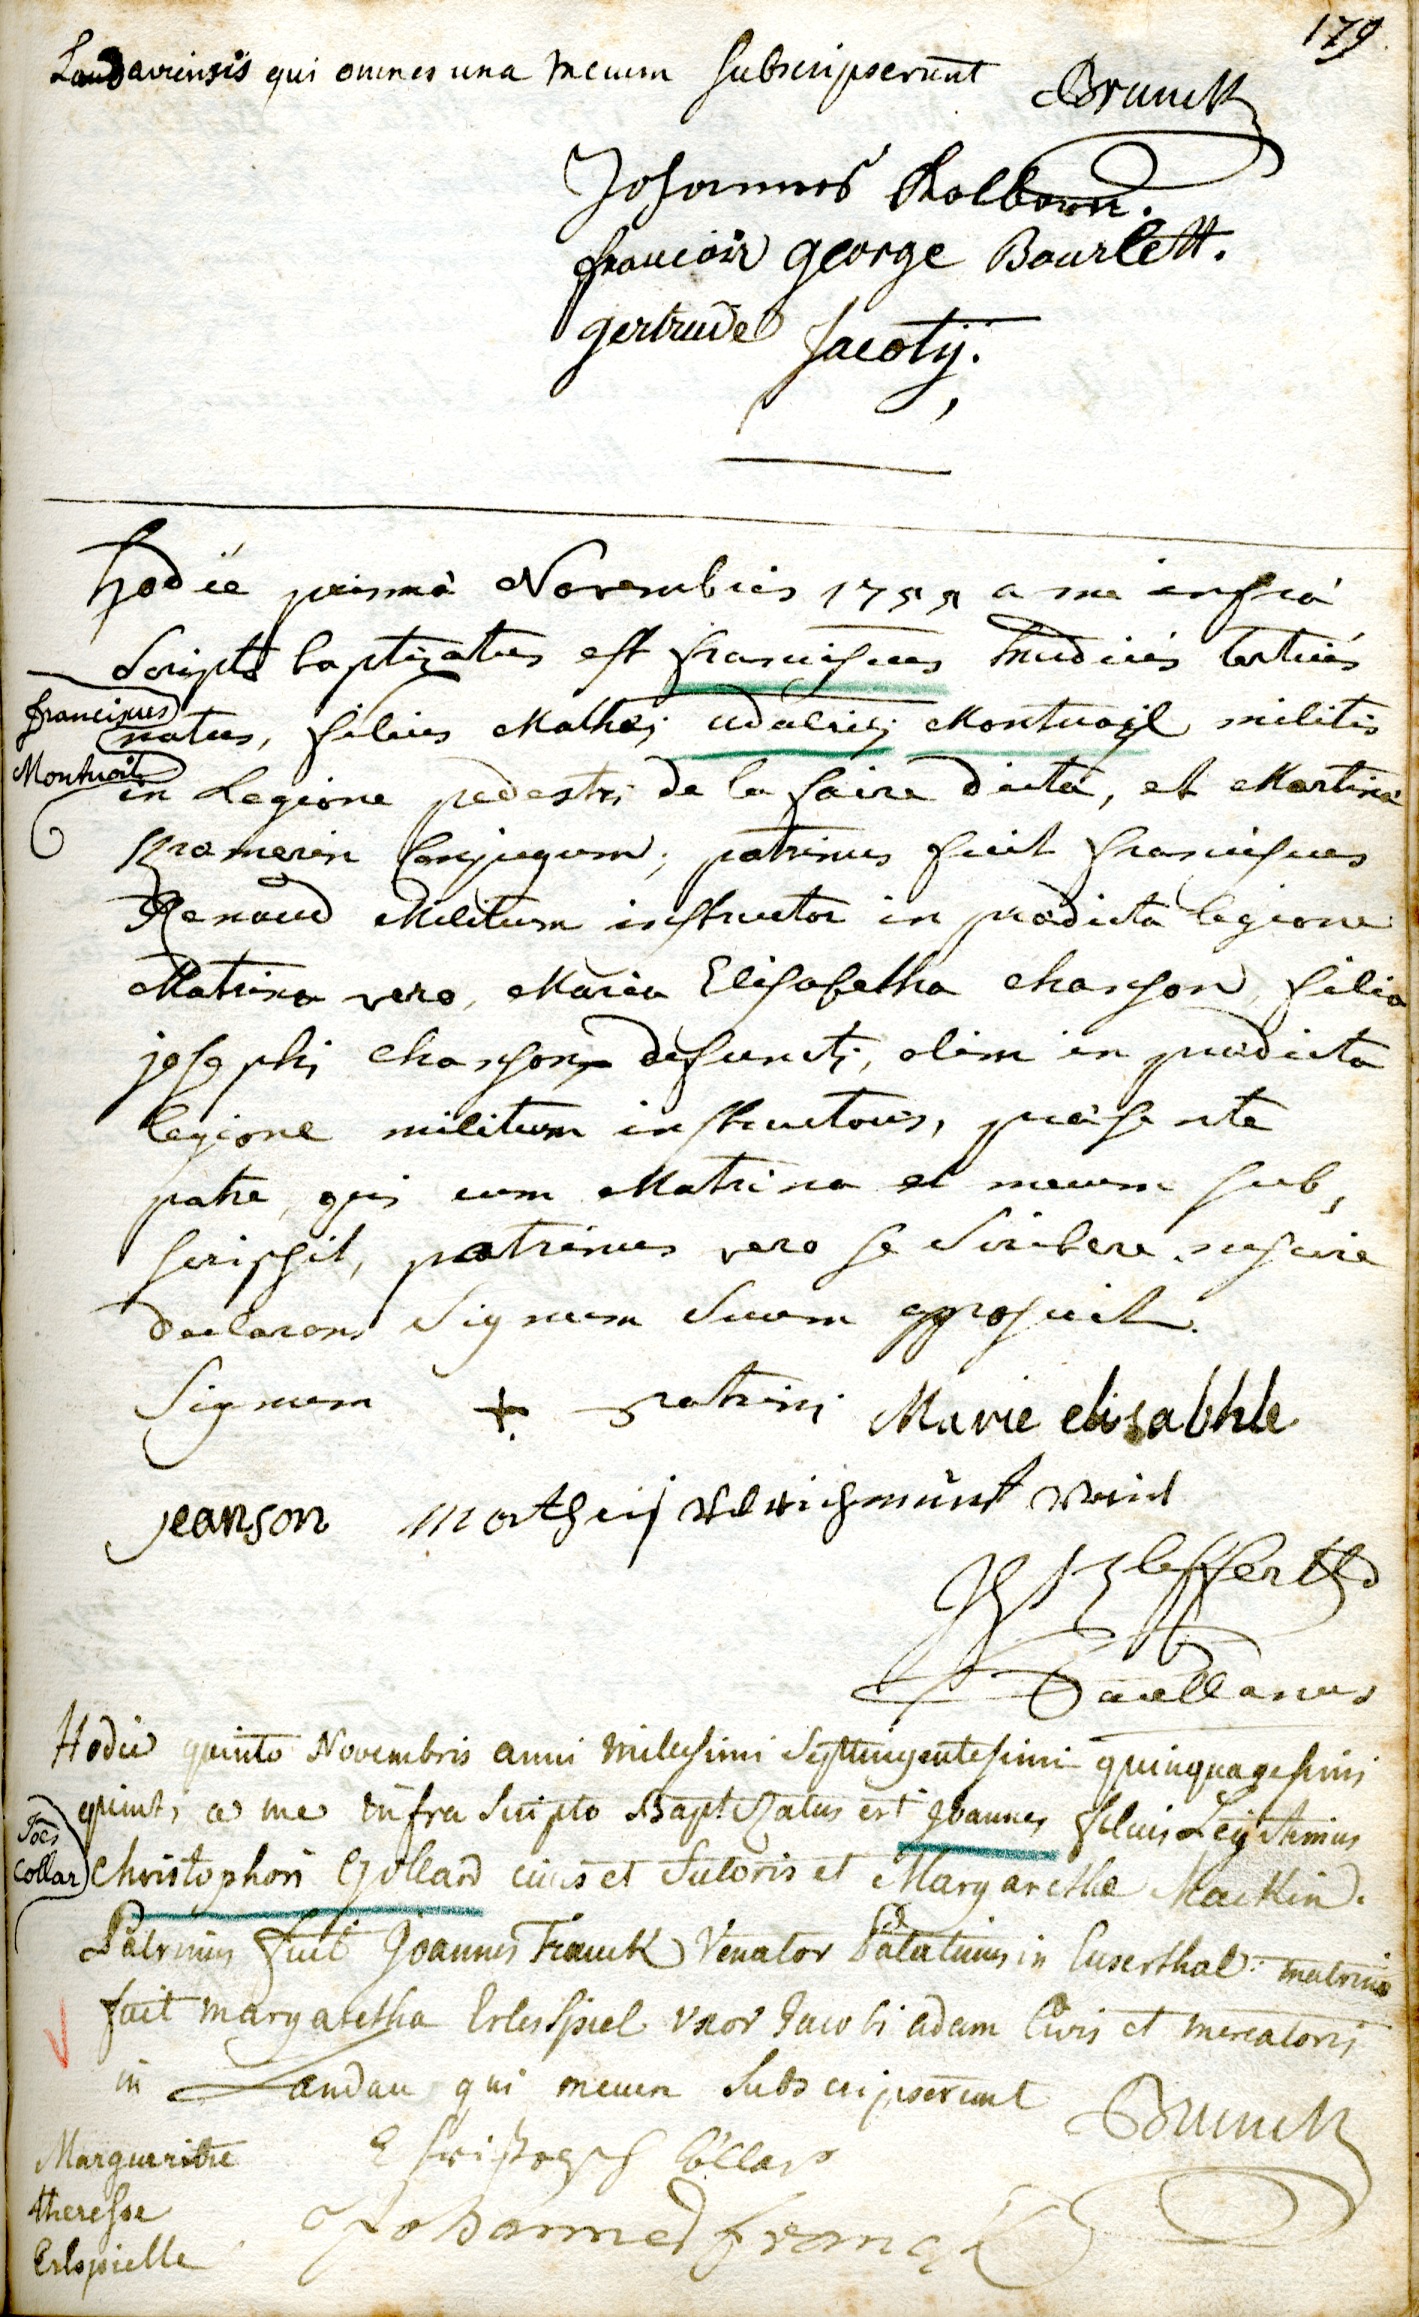 179.
Landaviensis qui omnes una mecum subscripserunt Brunck
Johannes
francois george Bourlett.
gertrude Jacoty.
Hodie prima Novembris 1755 a me infra
scripto baptizatus est franciscus nudius tertius
franciscus
natus, filius Mathei udalrici Montuoil militis
Montuoil
in Legione pedestri de la faire dicta, et Martina
Kramerin Conjugum; patrinus fuit franciscus
Renaud Militum instructor in prædicta legione
Matrina vero, Maria Elisabetha chanson, filia
josephi chanson defuncti, olim in prædicta
legione militum instructoris, præsente
patre, qui cum Matrina et mecum sub,
scripsit, patrinus vero se scribere nescire
declarans signum suum apposuit.
Signum + patrini Marie elisabhle
jeanson Matheis
Kleffert
Capellanus
Hodie quinto Novembris anni millesimi septingentesimi quinquagesimi
quinti a me infra scripto Baptizatus est Joannes filius Legitimus
Joes
Collar
Christophori Gollard civis et sutoris et Margarethæ Mackin.
Patrinus fuit Joannes Franck Venator Palatinus in Euserthal: matrina
fuit margaretha Erlespiel uxor Jacobi adam Civis et mercatoris
in Landau qui mecum subscripserunt Brunck
Margueritte
theresse
Erlspielle
Christoph Collar
Johannes franck